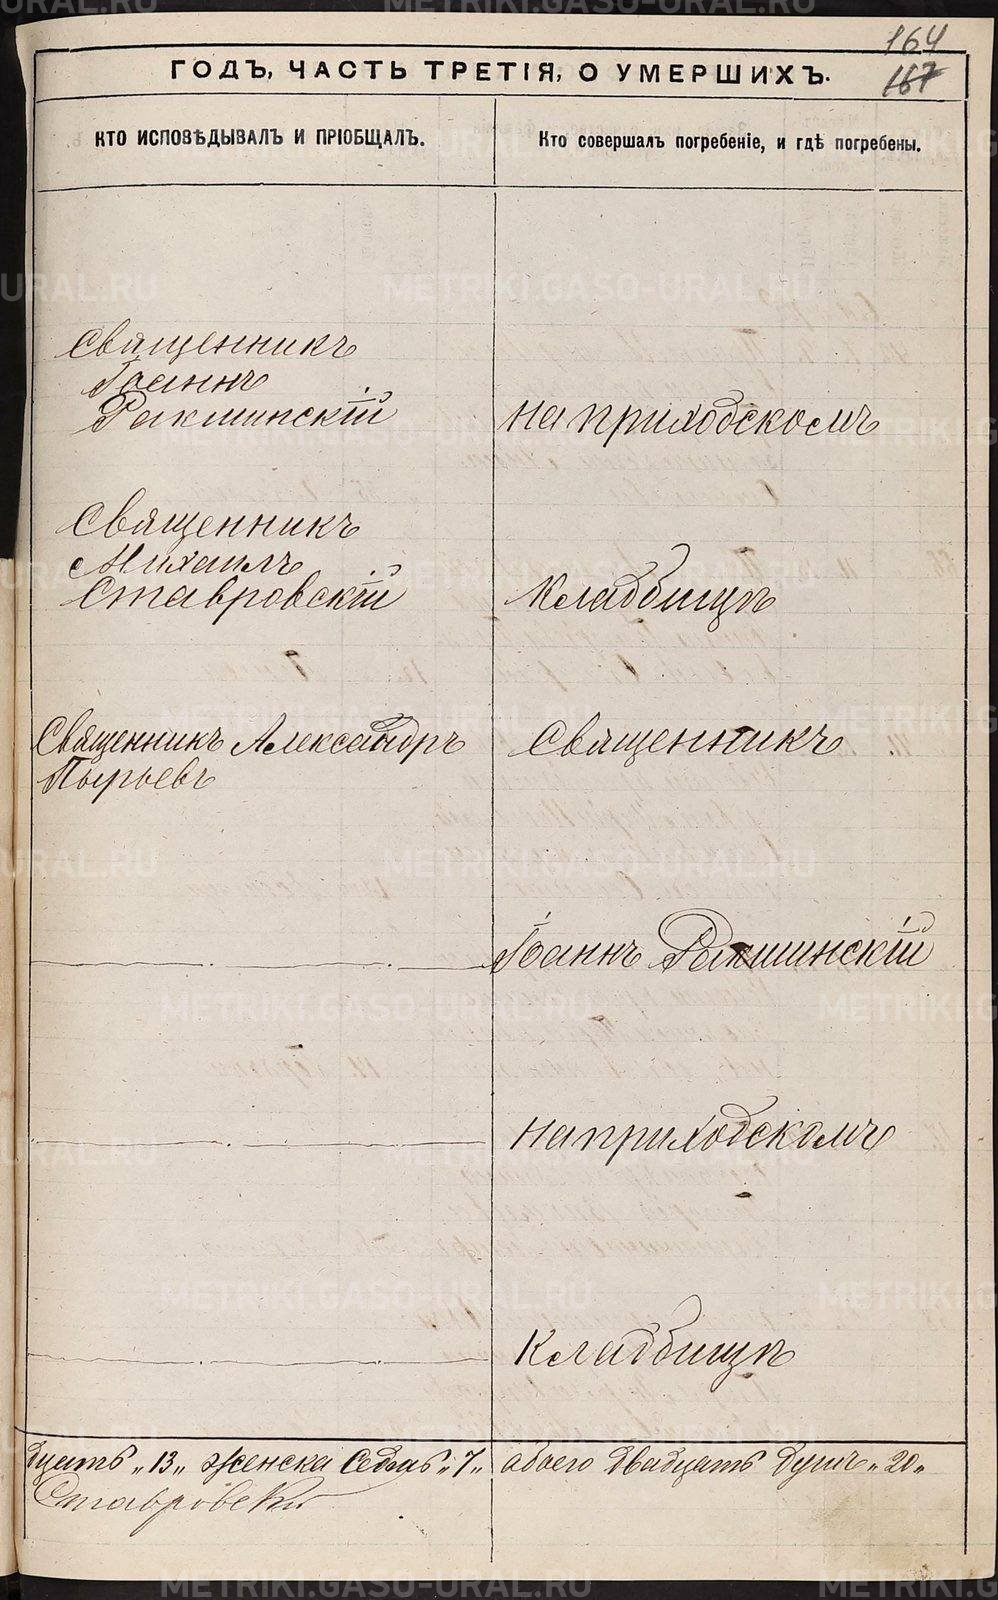 164
167
ГОДЪ, ЧАСТЬ ТРЕТІЯ, О УМЕРШИХЪ.
КТО ИСПОВѢДЫВАЛЪ И ПРІОБЩАЛЪ.
Кто совершалъ погребеніе, и гдѣ погребены.
Священникъ
Іоаннъ
Ракшинскій
на приходскомъ
Священникъ
Михаилъ
Ставровскій
кладбищѣ
Священникъ Александръ
Пырьевъ
Священникъ
Іоаннъ Ракшинскій
на приходскомъ
кладбищѣ
дцать „13„ женска Седмь „7„ обоего двадцать душъ „20„
Ставровскій
METRIKI.GASO-URAL.RU